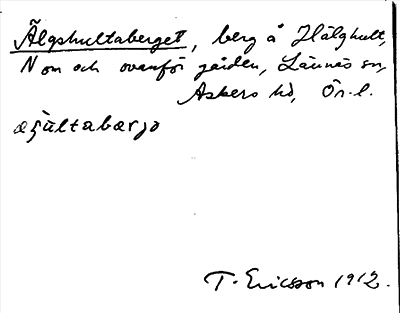 Älgshultaberget, berg å Hälghult,
N om och ovanför gården, Lännäs sn,
Askers hd, Ör. l.
æʃu̇ltabærjə
T. Ericsson 1912.